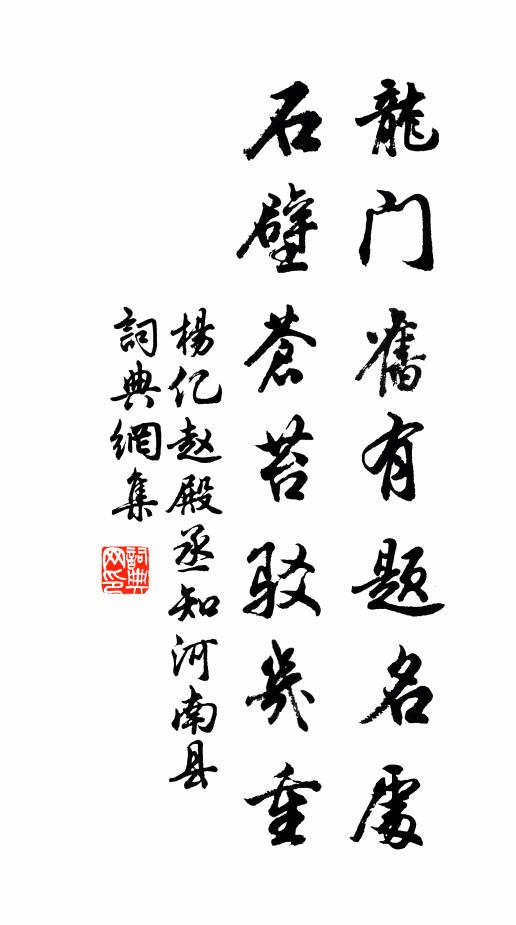 龍门舊有题名處
石壁蒼苔驳幾重
楊亿赵殿丞知河南县
詞典網集
詞典网印